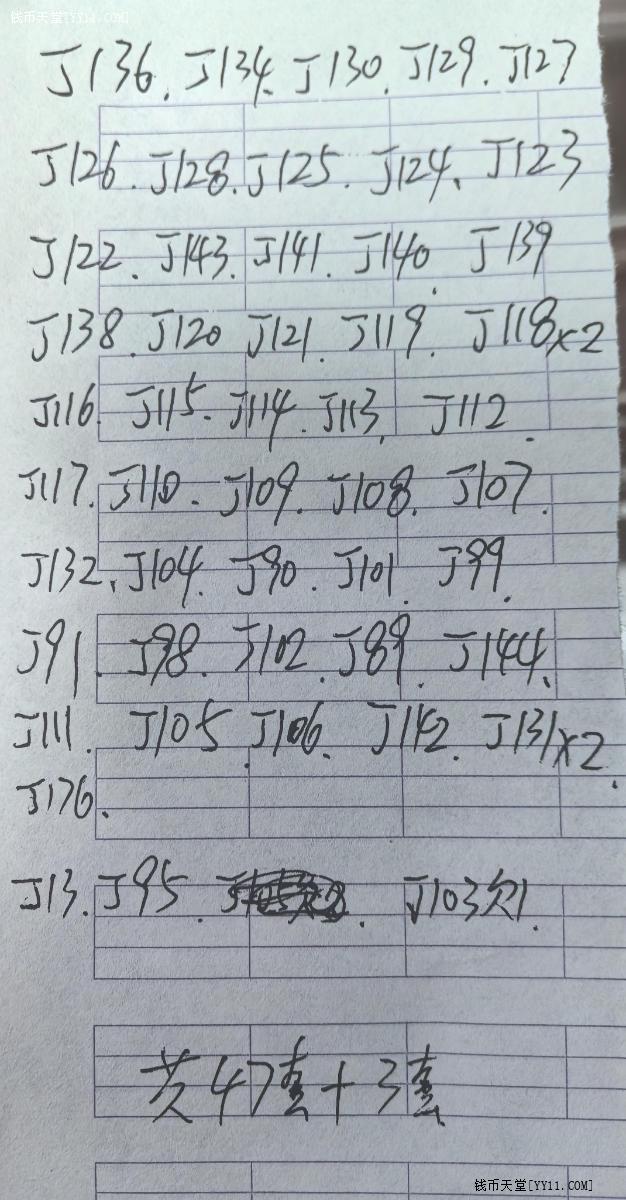 钱币天堂[YY11.COM]
J136. J134. J130. J129. J127
J126. J128. J125. J124、J123
J122. J143. J141. J140. J139
J138. J120 J121. J119. J118×2
J116. J115. J114. J113. J112.
J117. J110. J109. J108. J107.
J132. J104. J90. J101. J99.
J91. J98. J102. J89. J144.
J111. J105. J106. J142. J131×2.
J176.
J13. J95. J103欠1.
共47套+3套
钱币天堂[YY11.COM]